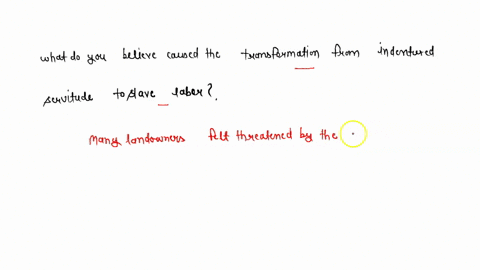 what do you believe caused the transformation from indentured
servitude to slave labor?.
Many landowners felt threatened by the